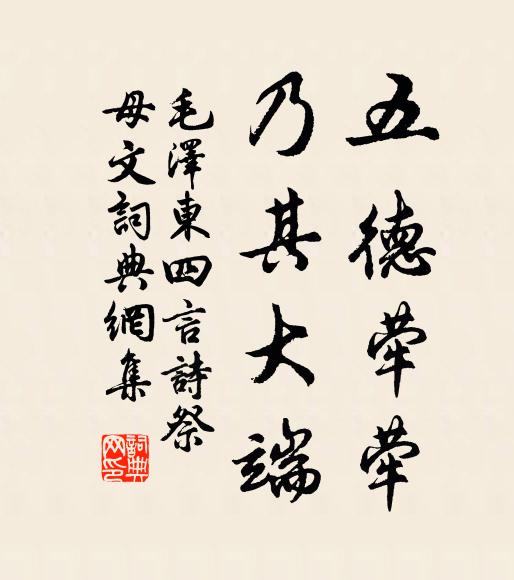 五德犖犖
乃其大端
毛澤東四言詩祭
母文詞典網集
詞典
网印